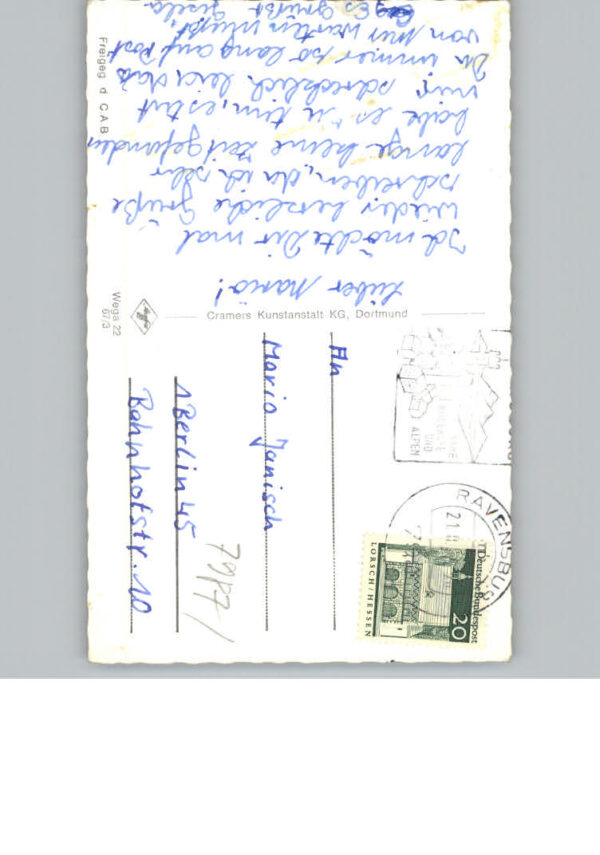 Lieber Mario!
Ich möchte Dir mal
wieder herzliche Grüße
schreiben, da ich sehr
lange keine Zeit gefunden
habe es zu tun, es tut
mir schrecklich leid, daß
Du immer so lang auf Post
von mir warten mußt.
Es grüßt
Gisela
Freigeg. d. CAB
Wega 22
67/3
Cramers Kunstanstalt KG, Dortmund
An
Mario Janisch
1 Berlin 45
Bahnhofstr. 10
UND
ALPEN
RAVENSBURG
21.
Deutsche Bundespost
20
LORSCH/HESSEN